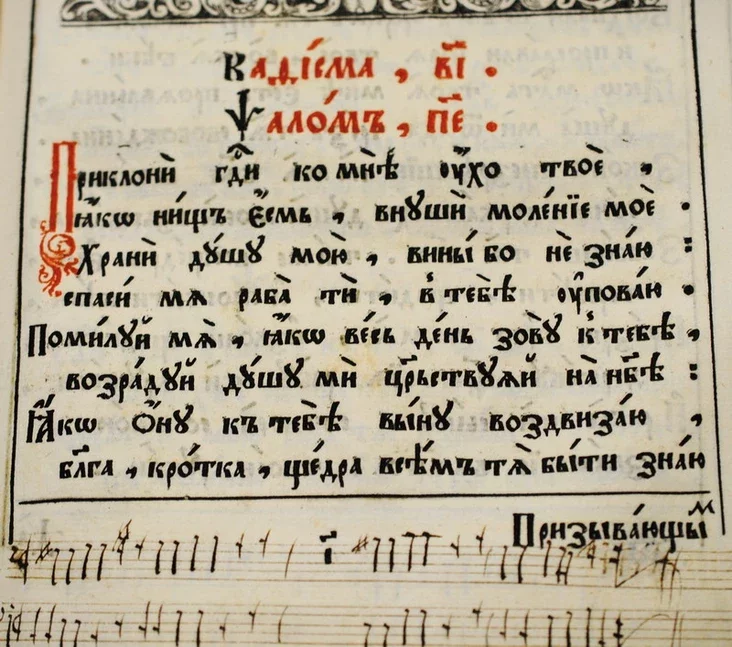 Кадїсма, в҃і.
Ѱало́мъ, п҃е.
Приклонѝ гдⷭ҇и ко мнѣ̀ ᲂу҆́хо твоѐ,
ꙗ҆́кѡ ни́щъ є҆́смь, внꙋшѝ моле́нїе моѐ.
Хранѝ дꙋ́шꙋ мою̀, вины́ бо не зна́ю:
спасѝ мѧ̀ раба̀ тѝ, в̾ тебѣ̀ ᲂу҆пова́ю.
Поми́лꙋй мѧ̀, ꙗ҆́кѡ ве́сь де́нь зовꙋ̀ к̾ тебѣ̀,
возра́дꙋй дꙋ́шꙋ мѝ цр҃ьствꙋѧй на нб҃ѣ:
Ꙗ҆́кѡ Ѻ҆нꙋ къ тебѣ̀ вы́нꙋ воздвиза́ю,
бл҃га, кро́тка, ще́дра всѣ́мъ тѧ̀ бы́ти зна́ю
Призыва́ющыⷨ